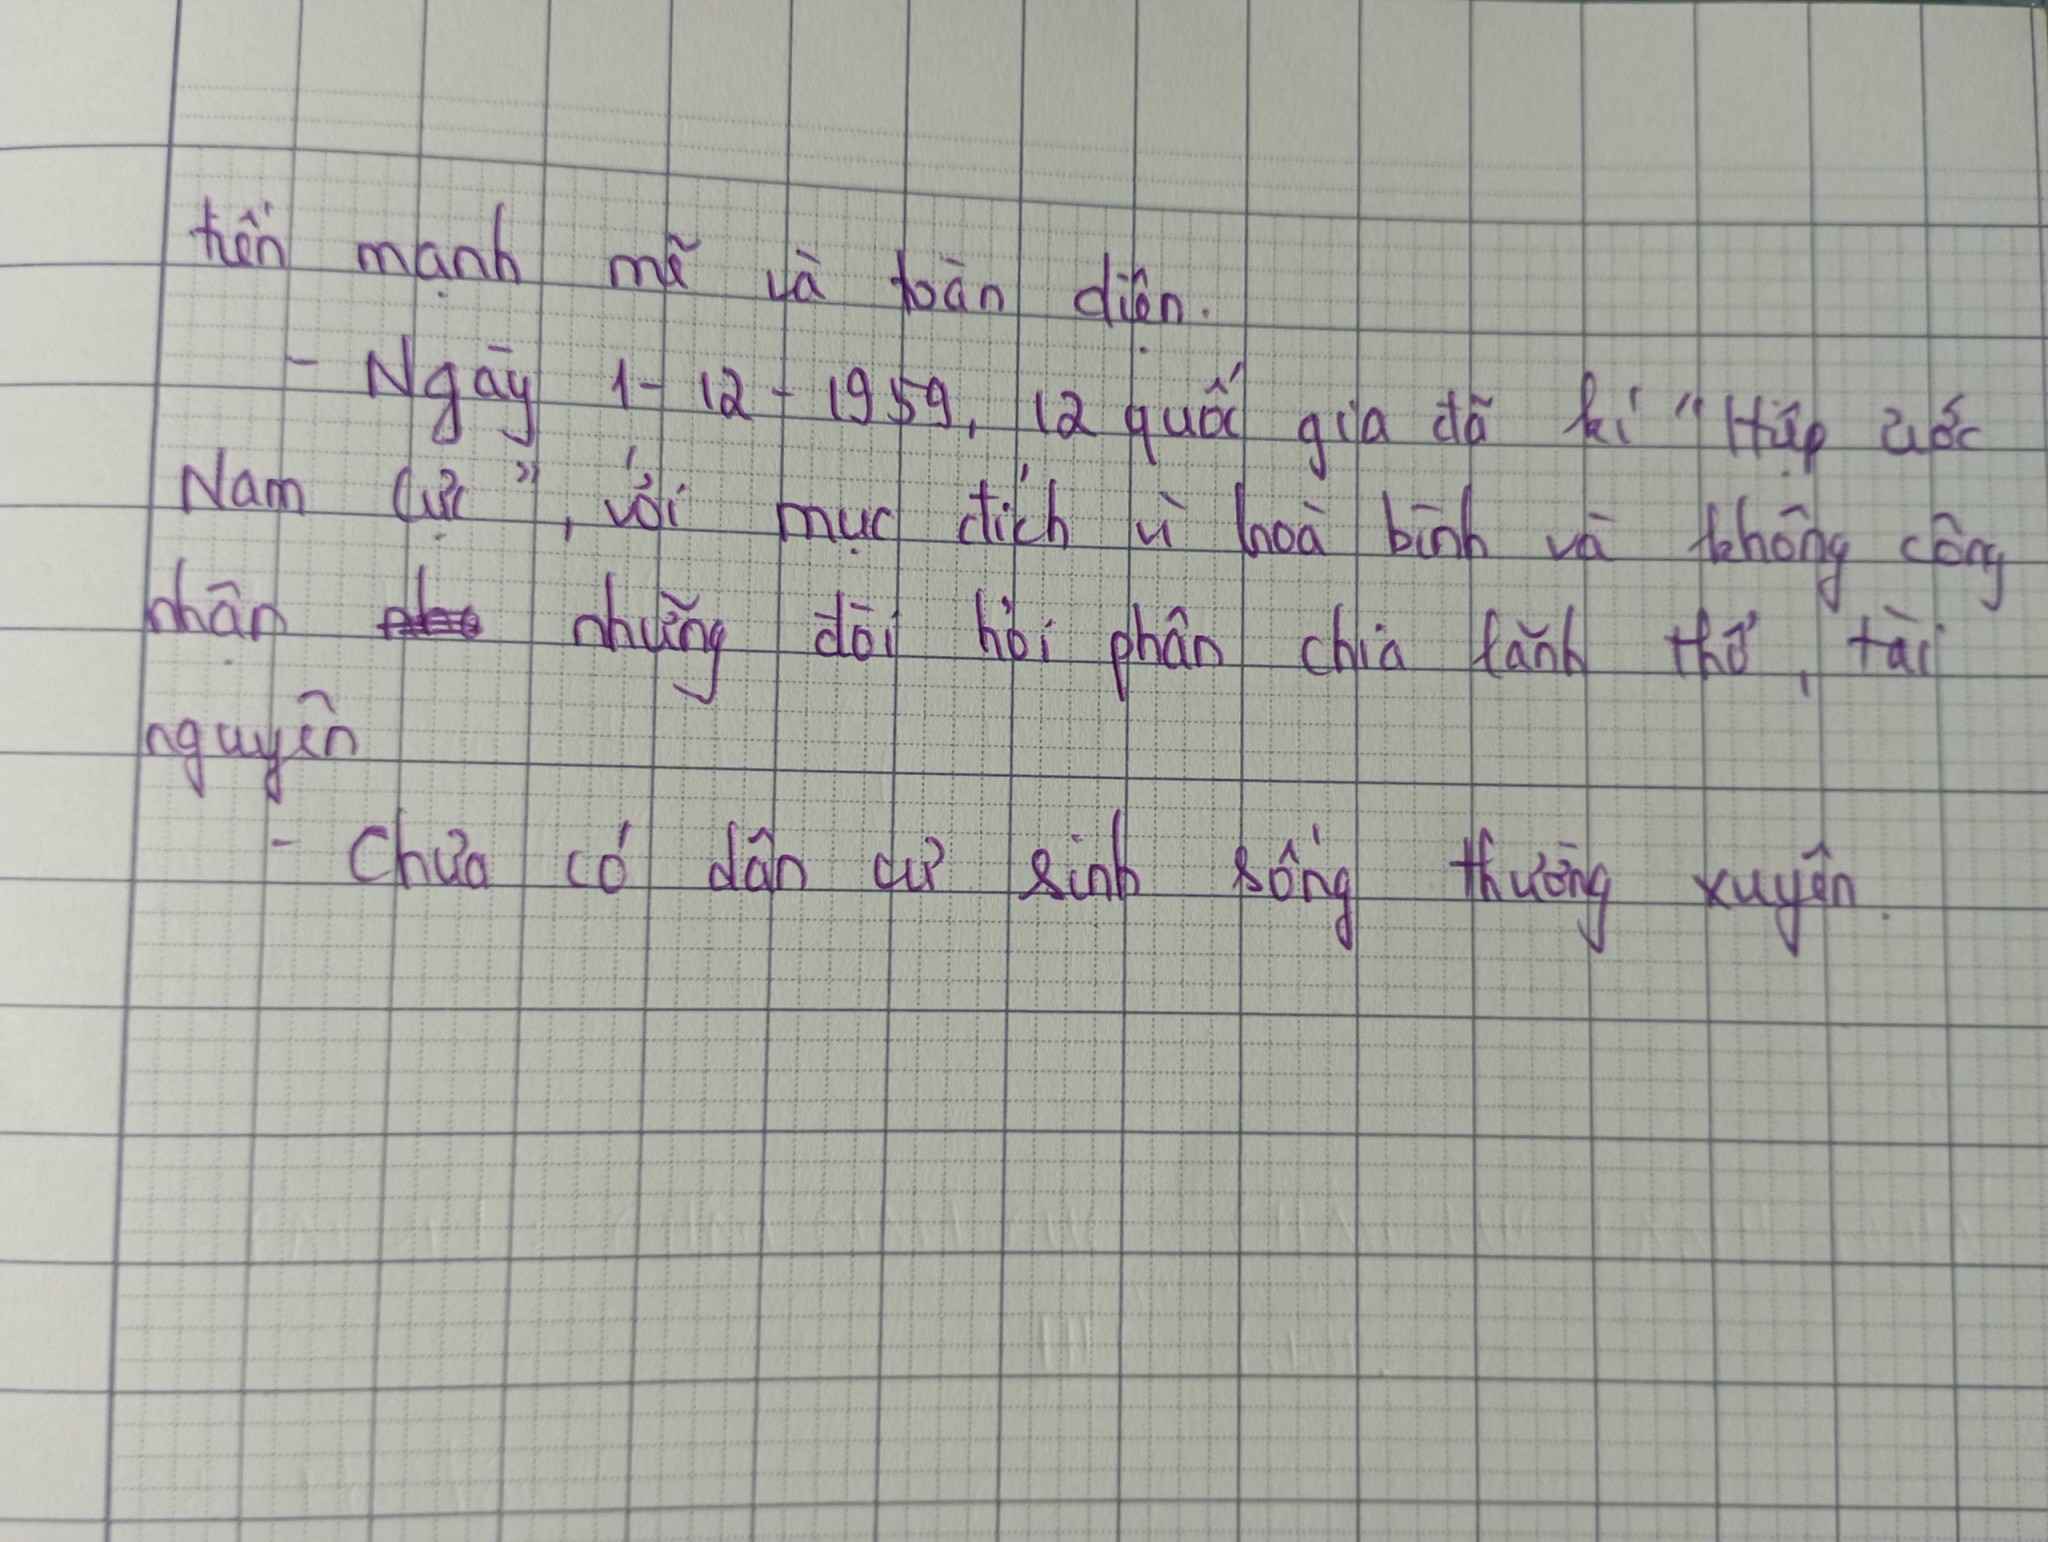 tiến mạnh mẽ và toàn diện.
- Ngày 1-12-1959, 12 quốc gia đã kí "Hiệp ước
Nam Cực", với mục đích vì hoà bình và không công
nhận những đòi hỏi phân chia lãnh thổ, tài
nguyên
- Chưa có dân cư sinh sống thường xuyên.